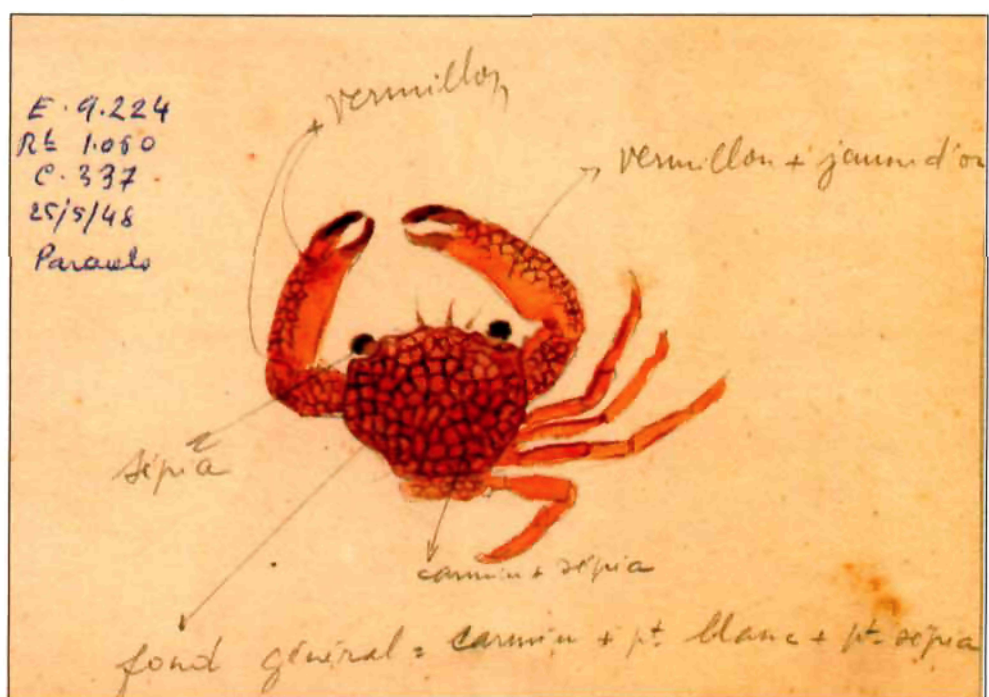 E. 9.224
Rt 1.060
C. 337
25/5/48
vermillon
vermillon + jaune d'or
sépia
carmin + sépia
fond général = carmin + pt. blanc + pt. sépia